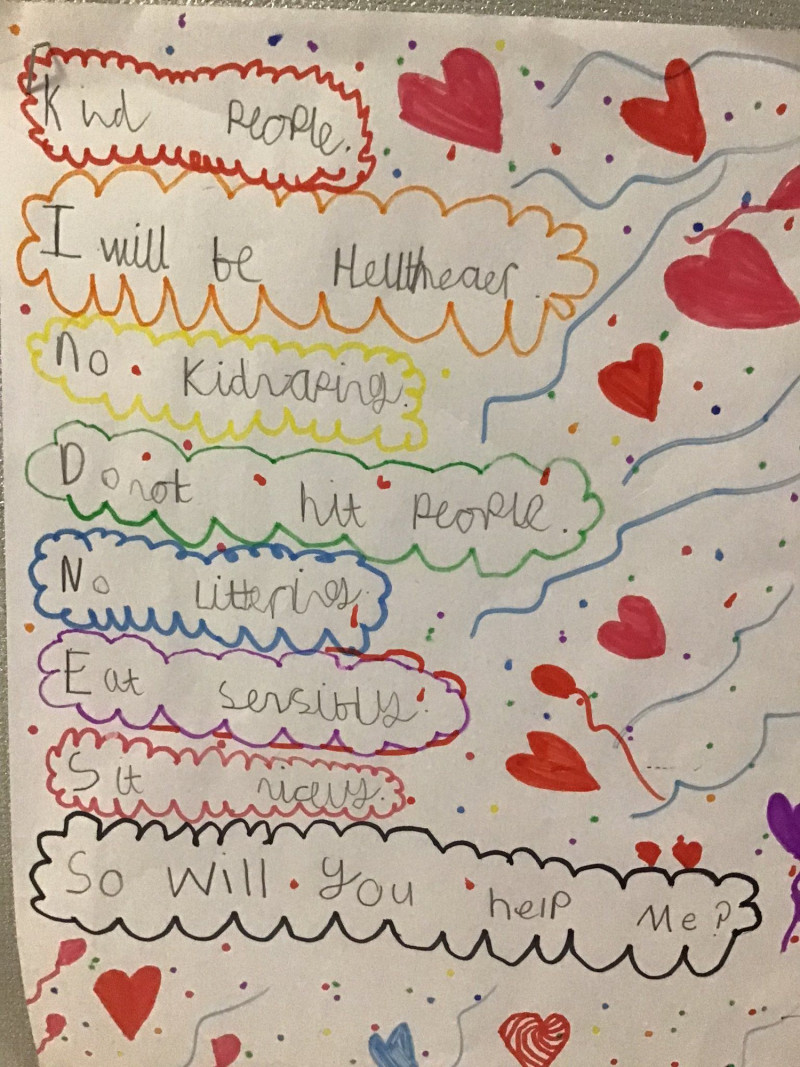 Kind People.
I will be Helltheaer.
no. Kidnaping.
Do not hit People.
No Littering.
Eat sensibly.
Sit nicely.
So Will. You help Me?